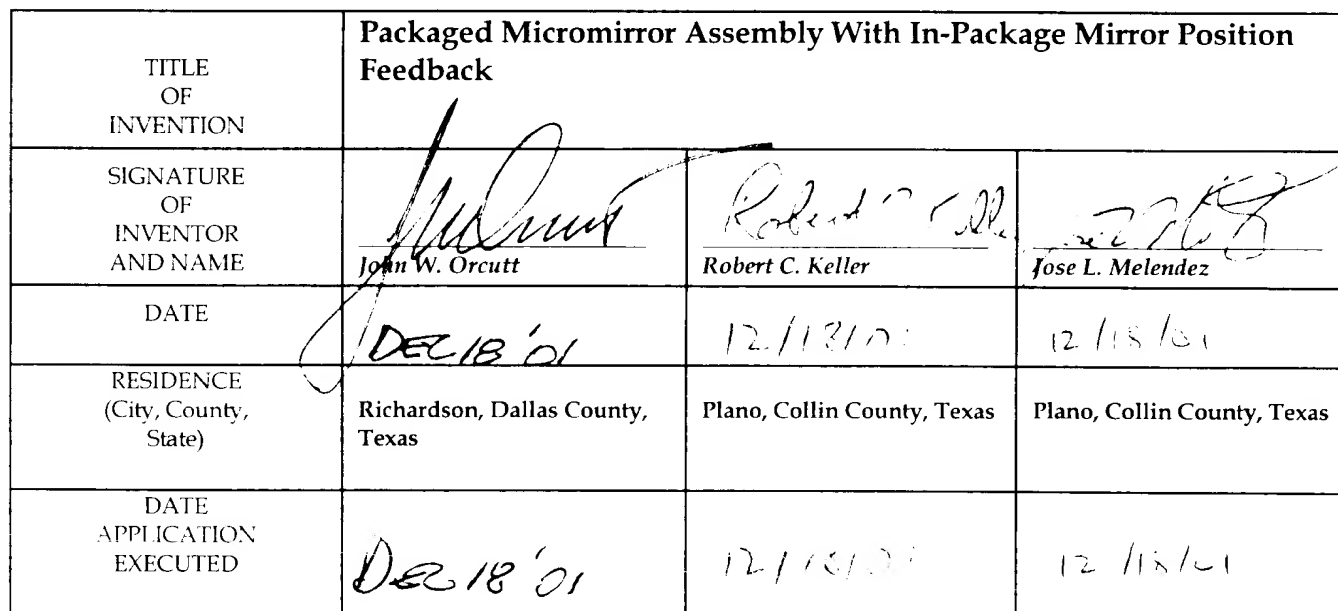 TITLE
OF
INVENTION
Packaged Micromirror Assembly With In-Package Mirror Position
Feedback
SIGNATURE
OF
INVENTOR
AND NAME
John W. Orcutt
Robert C. Keller
Jose L. Melendez
DATE
DEC 18 '01
12/18/01
12/18/01
RESIDENCE
(City, County,
State)
Richardson, Dallas County,
Texas
Plano, Collin County, Texas
Plano, Collin County, Texas
DATE
APPLICATION
EXECUTED
DEC 18 '01
12/18/01
12/18/01